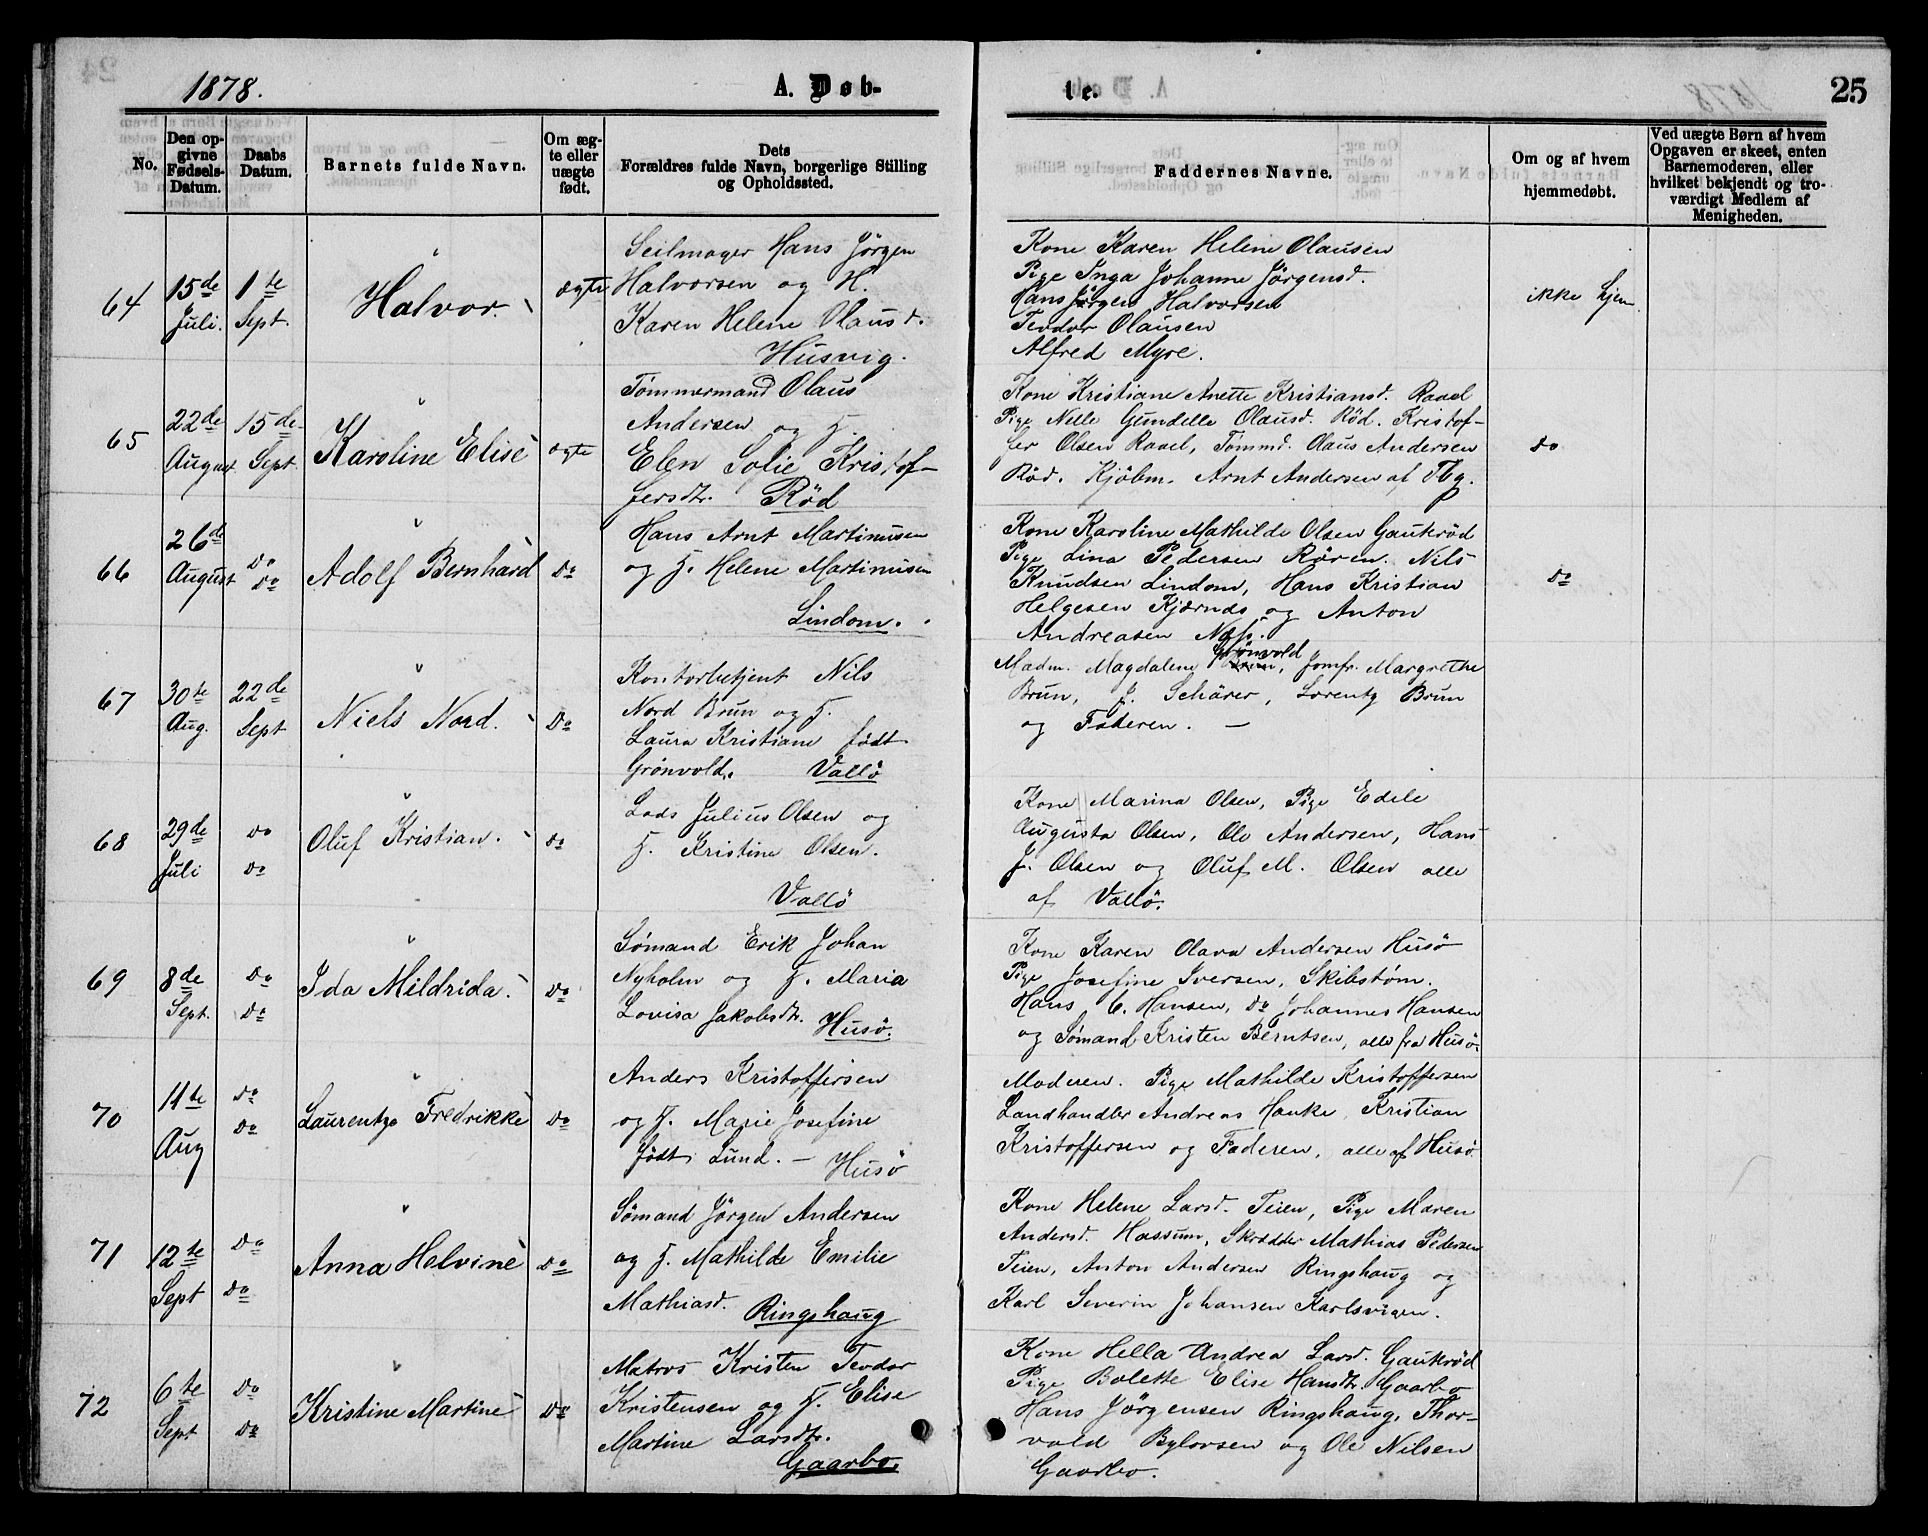 1878.
A. Døb-
te.
25
No.
Den op-
givne
Fødsels-
Datum.
Daabs
Datum.
Barnets fulde Navn.
Om æg-
te eller
uægte
født.
Dets
Forældres fulde Navn, borgerlige Stilling
og Opholdssted.
Faddernes Navne.
Om og af hvem
hjemmedøbt.
Ved uægte Børn af hvem
Opgaven er skeet, enten
Barnemoderen, eller
hvilket bekjendt og tro-
værdigt Medlem af
Menigheden.
64
15de
Juli.
1te
Sept.
Halvor.
ægte
Seilmager Hans Jörgen
Halvorsen og H.
Karen Helene Olausd.
Husvig.
Kone Karen Helene Olausen
Pige Inga Johanne Jörgensd.
Hans Jörgen Halvorsen
Teodor Olausen
Alfred Myre.
ikke hjem.
65
22de
August
15de
Sept.
Karoline Elise
ægte
Tömmermand Olaus
Andersen og H.
Elen Sofie Kristof-
fersdtr. Röd
Kone Kristiane Anette Kristiansd. Ravel
Pige Nelle Gundelle Olausd. Röd. Kristof-
fer Olsen Ravel, Tömmd. Olaus Andersen
Röd. Kjöbm. Arnt Andersen af Tbg.
Do
66
26de
August
Do
Do
Adolf Bernhard
Do
Hans Arnt Martinusen
og H. Helene Martinusen
Lindom.
Kone Karoline Mathilde Olsen Gaukeröd
Pige Lina Pedersen Rören. Nils
Knudsen Lindom, Hans Kristian
Helgesen Kjærnæs og Anton
Andreasen Næs.
Do
67
30te
Aug.
22de
Sept
Niels Nord.
Do
Kontorbetjent Nils
Nord Brun og H.
Laura Kristiane födt
Grönvold. Vallö
Grönvold
Madm. Magdalene Brun, Jomfr. Margrethe
Brun, J. Schärer, Lorentz Brun
og Faderen. —
68
29de
Juli
Do
Do
Oluf Kristian.
Do
Lods Julius Olsen og
H. Kristine Olsen.
Vallö
Kone Marina Olsen, Pige Edele
Augusta Olsen, Ole Andersen, Hans
J. Olsen og Oluf M. Olsen alle
af Vallö.
69
8de
Sept.
Do
Do
Ida Mildrida.
Do
Sömand Erik Johan
Nyholm og H. Maria
Lovisa Jakobsdtr. Husö.
Kone Karen Olava Andersen Husö
Pige Josefine Iversen, Skibstöm.
Hans C. Hansen, Do Johannes Hansen
og Sömand Kristen Berntsen, alle fra Husö.
70
11te
Aug
Do
Do
Laurentze Fredrikke
Do
Anders Kristoffersen
og H. Marie Josefine
födt Lund. — Husö
Moderen. Pige Mathilde Kristoffersen
Landhandler Andreas Hanke, Kristian
Kristoffersen og Faderen, alle af Husö.
71
12te
Sept
Do
Do
Anna Helvine
Do
Sömand Jörgen Andersen
og H. Mathilde Emilie
Mathiasd. Ringshaug
Kone Helene Larsd. Teien, Pige Maren
Andersd. Hassum, Skrædder Mathias Pedersen
Teien, Anton Andersen Ringshaug og
Karl Severin Johansen Karlsvigen.
72
6te
Sept
Do
Do
Kristine Martine
Do
Matros Kristen Teodor
Kristensen og H. Elise
Martine Larsdtr.
Gaarbo.
Kone Hella Andrea Larsd. Gaukeröd
Pige Bolette Elise Hansdtr. Gaarbo
Hans Jörgensen Ringshaug, Thor-
vald Bylovsen og Ole Nilsen
Gaarbo.